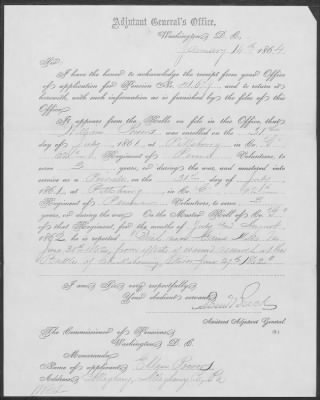 Adjutant General's Office,
Washington D. C.
January 14th 1864
Sir:
I have the honor to acknowledge the receipt from your Office
of application for Pension No. and to return it
herewith, with such information as is furnished by the files of this
Office.
It appears from the Rolls on file in this Office, that
William was enrolled on the 31st
day of July, 1861, at Pittsburg in Co.
Regiment of Penna Volunteers, to
serve 3 years, or during the war, and mustered into
service as a Private on the day of
1861, at Pittsburg, in Co.
Regiment of Penna Volunteers, to serve 3
years, or during the war. On the Muster Roll of Co.
of that Regiment, for the months of July and August,
1862, he is reported
June from effect of wounds received at the
Battle of June 27th 1862
I am Sir, very respectfully,
Your obedient servant,
Assistant Adjutant General.
The Commissioner of Pensions,
Washington D. C.
Memoranda.
Name of applicant Ellen
Address Allegheny, Allegheny Co, Pa